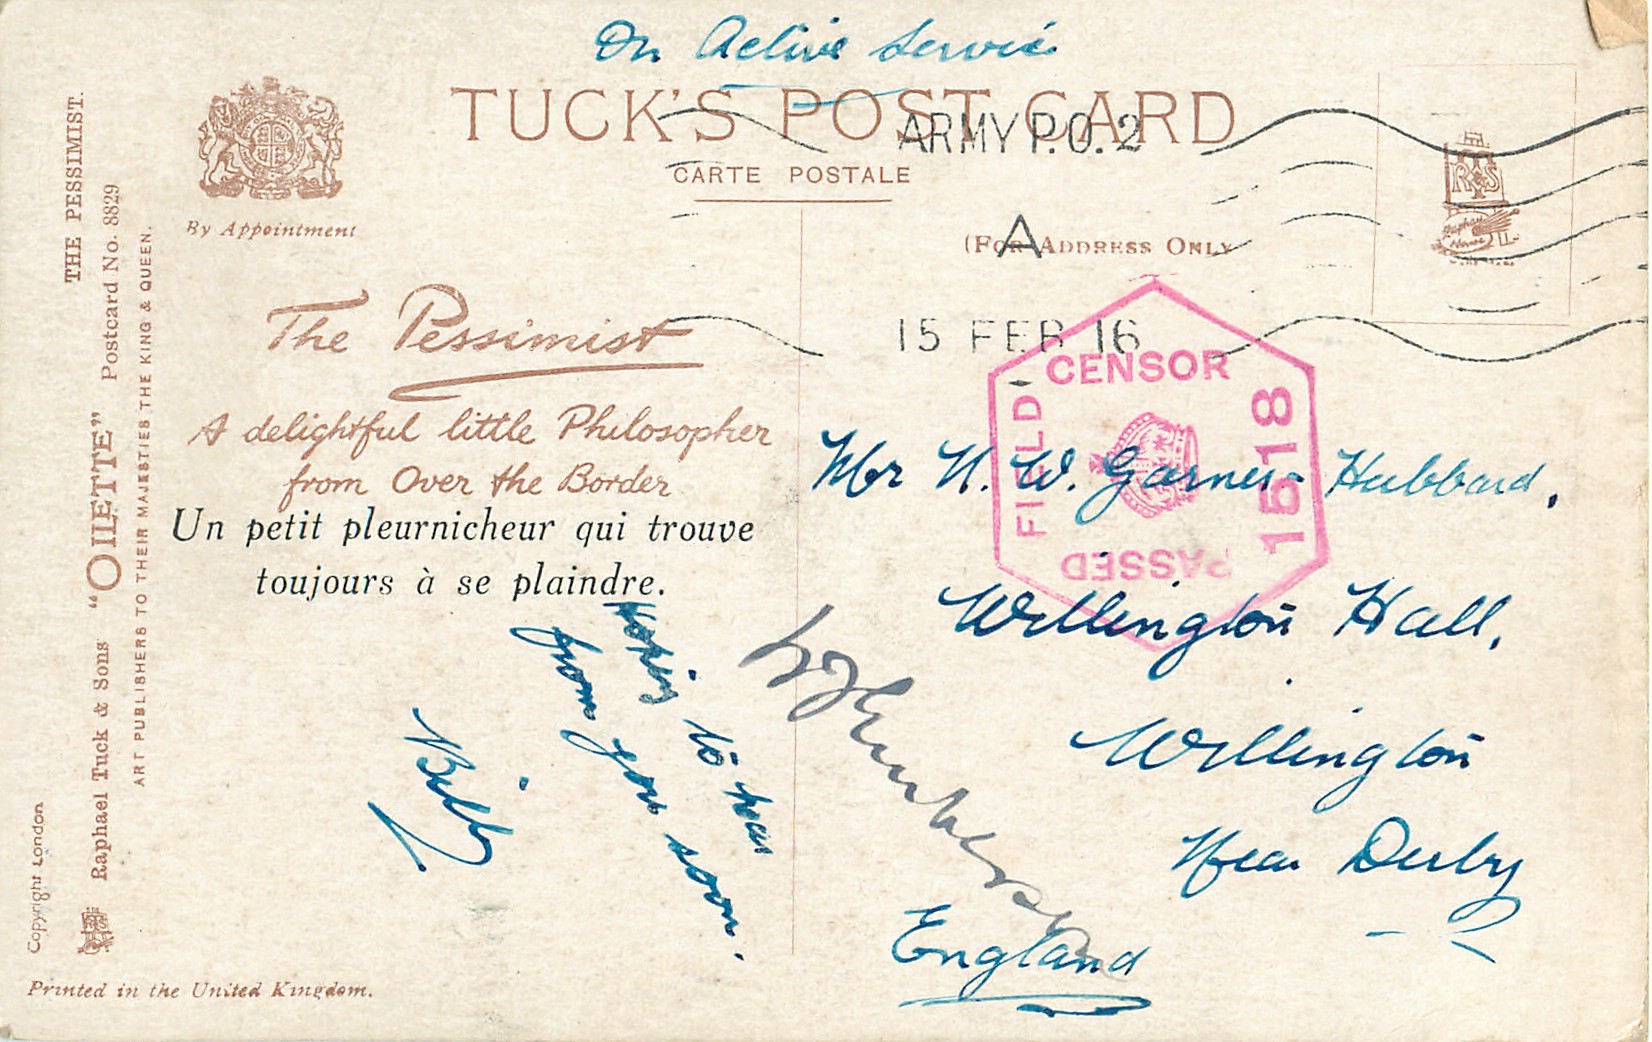 On Active Service
TUCK'S POST CARD
CARTE POSTALE
ARMY P.O. 2
A
15 FEB 16
By Appointment
(FOR ADDRESS ONLY
The Pessimist
A delightful little Philosopher
from Over the Border
Un petit pleurnicheur qui trouve
toujours à se plaindre.
Hoping to hear
from you soon.
Billy
FIELD CENSOR
1618
PASSED
Mr N. W. Garner Hubbard,
Willington Hall,
Willington
Near Derby
England
THE PESSIMIST.
Raphael Tuck & Sons "OILETTE" Postcard No. 8829
ART PUBLISHERS TO THEIR MAJESTIES THE KING & QUEEN.
Copyright London
Printed in the United Kingdom.